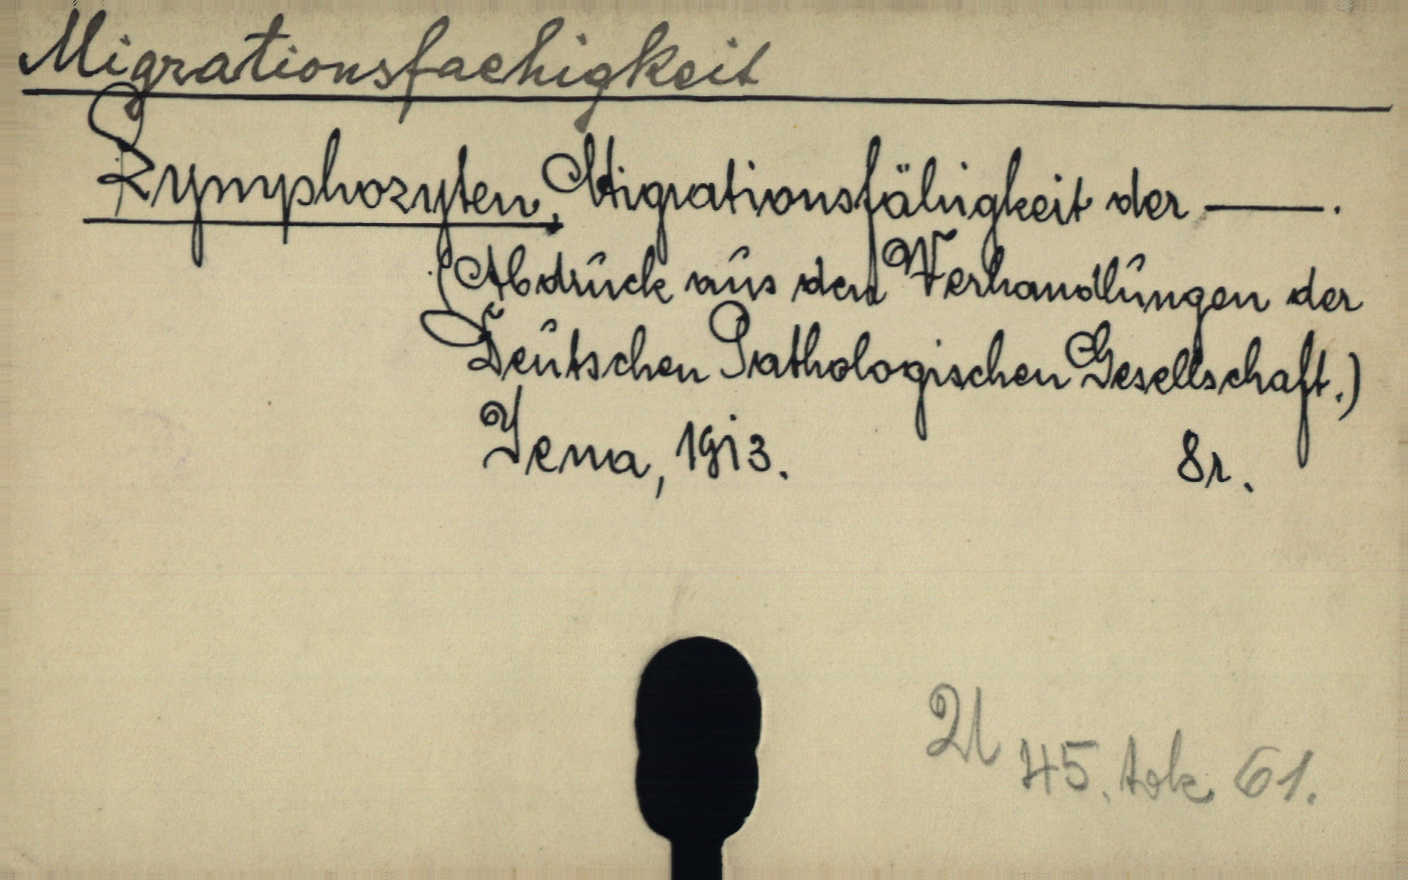 Migrationsfaehigkeit
Lymphozyten, Migrationsfähigkeit der ———.
(Abdruck aus den Verhandlungen der
Deutschen Pathologischen Gesellschaft.)
Jena, 1913. 8r.
45. tok 61.